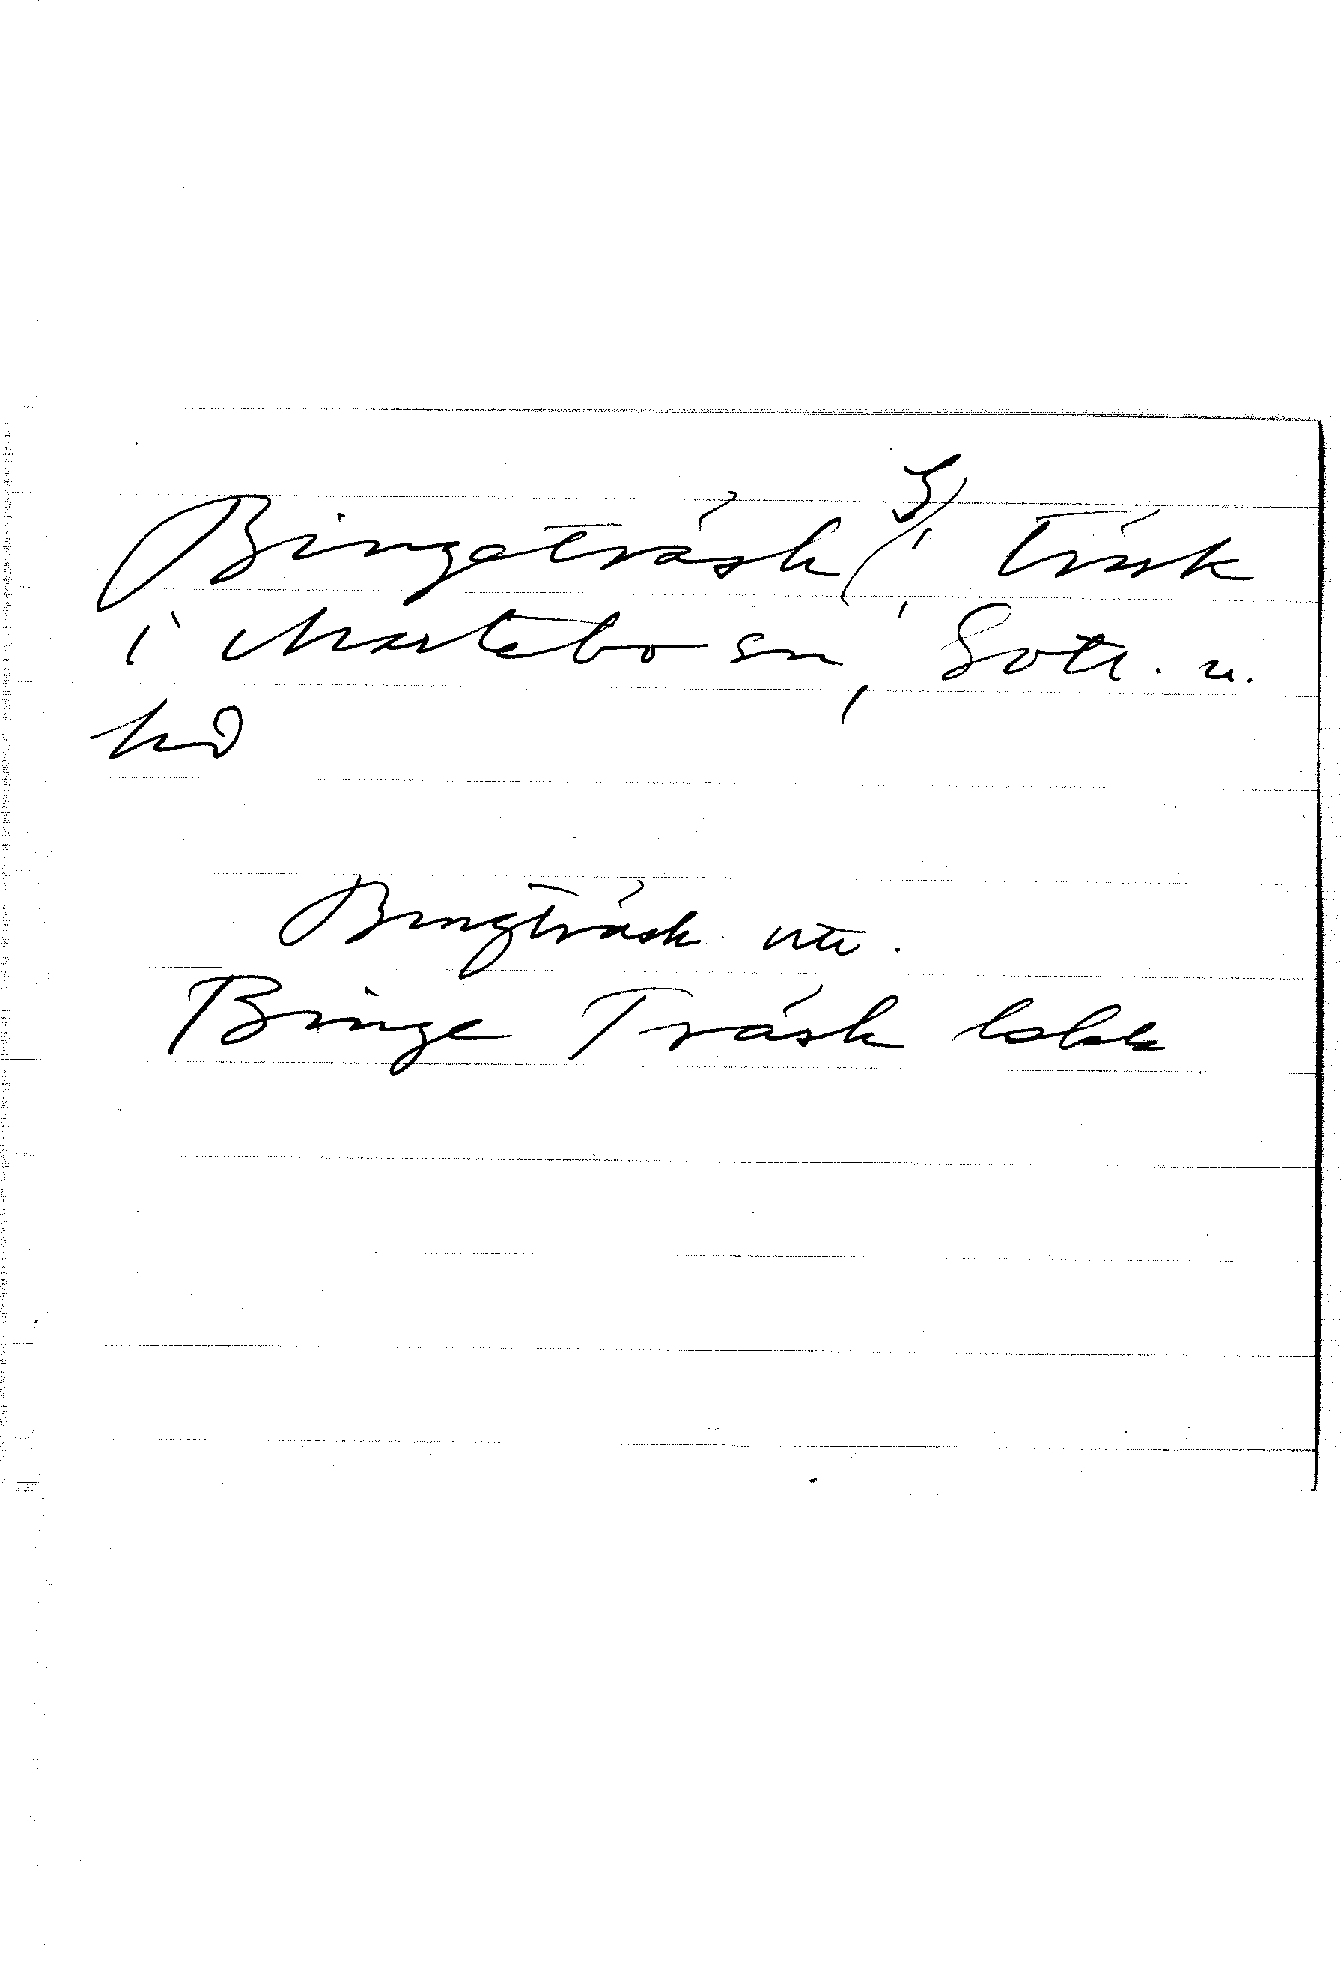 Bingeträsk, träsk
i Martebo sn, Gotl. n.
hd
Bingträsk
Binge Träsk